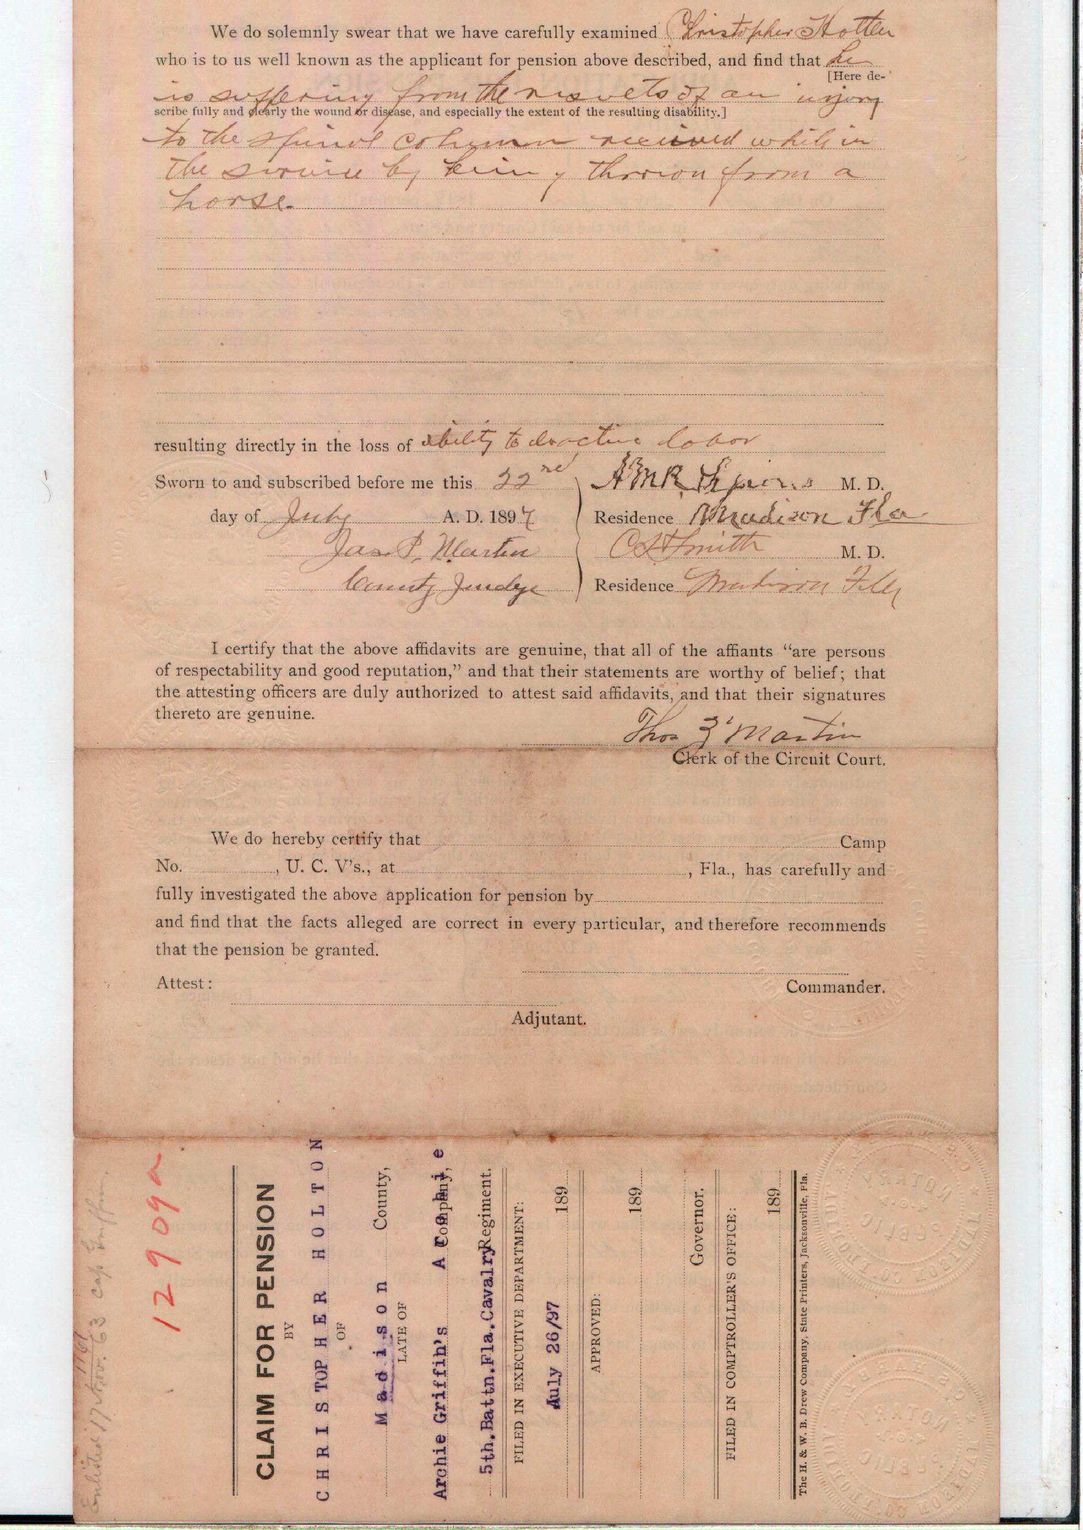 We do solemnly swear that we have carefully examined Christopher Holten
who is to us well known as the applicant for pension above described, and find that he
[Here de-
is suffering from the resuets of an injory
scribe fully and clearly the wound or disease, and especially the extent of the resulting disability.]
to the spinol column received while in
the service by being thrown from a
horse.
resulting directly in the loss of ability to do active labor
Sworn to and subscribed before me this 22nd M. D.
day of July A. D. 1897 Residence Madison Fla
Jas P. Martin C S Smith M. D.
County Judge Residence Madison Fla
I certify that the above affidavits are genuine, that all of the affiants “are persons
of respectability and good reputation,” and that their statements are worthy of belief; that
the attesting officers are duly authorized to attest said affidavits, and that their signatures
thereto are genuine.
Thos Martin
Clerk of the Circuit Court.
We do hereby certify that Camp
No. , U. C. V's., at , Fla., has carefully and
fully investigated the above application for pension by
and find that the facts alleged are correct in every particular, and therefore recommends
that the pension be granted.
Attest: Commander.
Adjutant.
Enlisted 17 Nov. 63 cap Griffin
12909a
CLAIM FOR PENSION
BY
CHRISTOPHER HOLTON
OF
Madison County,
LATE OF
Archie Griffin's Company,
5th.Battn.Fla.Cavalry Regiment.
FILED IN EXECUTIVE DEPARTMENT:
July 26/97 189
APPROVED:
189
Governor.
FILED IN COMPTROLLER'S OFFICE:
189
The H. & W. B. Drew Company, State Printers, Jacksonville, Fla.